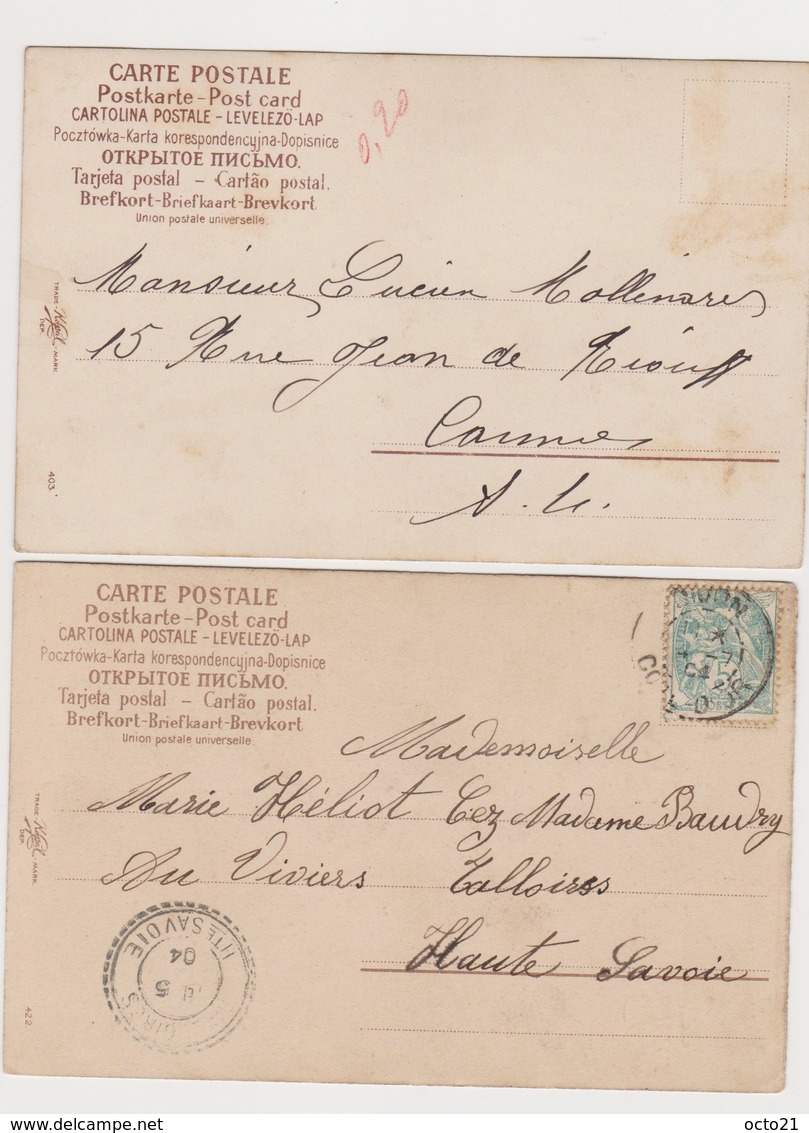 CARTE POSTALE
Postkarte-Post card
CARTOLINA POSTALE - LEVELEZÖ-LAP
Pocztówka-Karta korespondencyjna-Dopisnice
ОТКРЫТОЕ ПИСЬМО.
Tarjeta postal - Cartão postal.
Brefkort-Briefkaart-Brevkort
Union postale universelle.
0,20
TRADE-
DEP.
-MARK
Monsieur Lucien Mollinare
15 Rue Jean de Riouff
Cannes
A. M.
403
CARTE POSTALE
Postkarte-Post card
CARTOLINA POSTALE - LEVELEZÖ-LAP
Pocztówka-Karta korespondencyjna-Dopisnice
ОТКРЫТОЕ ПИСЬМО.
Tarjeta postal - Cartão postal.
Brefkort-Briefkaart-Brevkort
Union postale universelle.
TRADE-
DEP.
-MARK
Mademoiselle
Marie Héliot Cez Madame Baudry
Au Viviers Talloires
Haute Savoie
HTE SAVOIE
04
5
422
www.delcampe.net
octo21